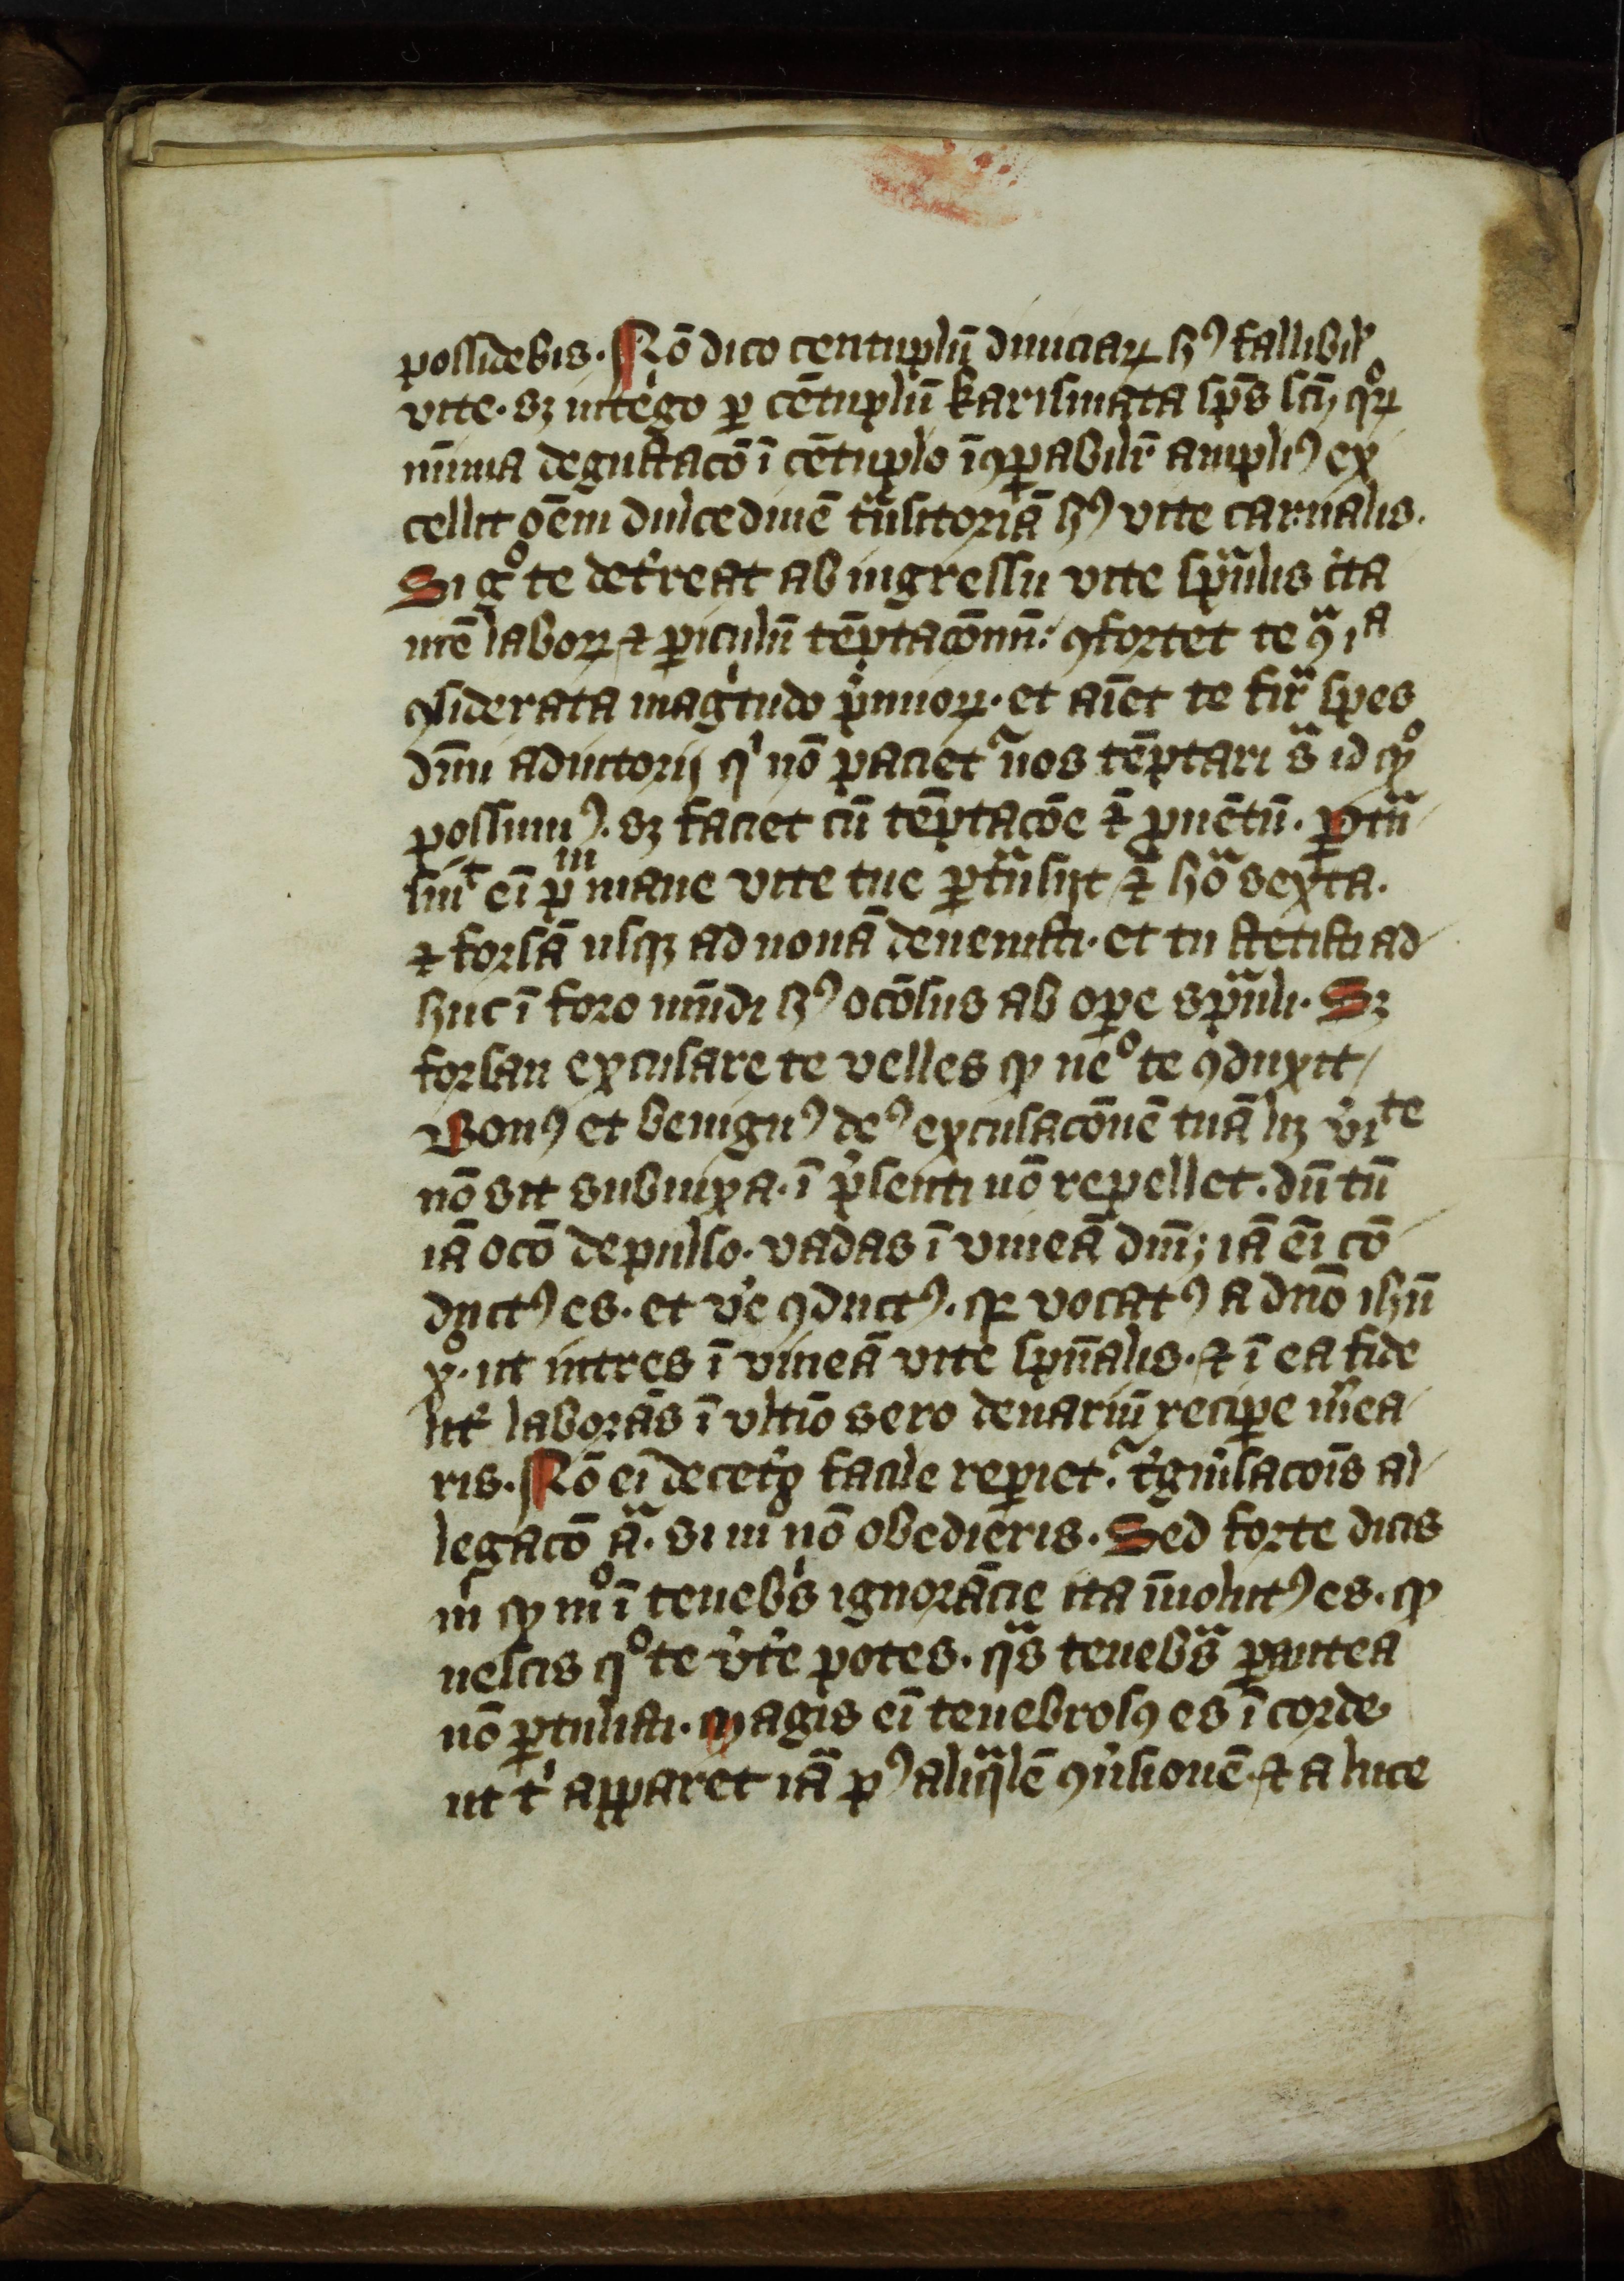 possidebis. Nō dico centuplū diuiciaꝝ hꝰ fallibil̉
vite. sꝫ intego ꝑ cētuplū karismata sp̄s sc̄i qͦꝝ
minia degustacō ī cētuplo īꝯꝑabilīr ampliꝰ ex
cellit oēm dulcedinē trāsitoriā hꝰ vite carnalis.
Si gͦ te det̉reat ab ingressu vite sp̄ualis ita
mē laboꝝ ⁊ ꝑiculū tēptacōnum: ꝯfortet te qͣ iᵃ
ꝯsiderata magͥtudo p̄mioꝝ. et aīet te firͣ spes
diui adiutorij qͥ nō pacietᷣ uos tēptari sͣ id qͦ
possumꝰ. sꝫ faciet cū tēptacōe ⁊ ꝓuētū. ꝑtrā
siit eī pͫ mane vite tue ꝑtrāsijt ⁊ hōͣ sexta.
⁊ forsā usqꝫ ad nonā deuenisti. et tu stetisti ad
huc ī foro mūdi hꝰ ocōsus ab oꝑe sp̄uali. Sꝫ
forsan excusare te velles ꝙ neͦ te ꝯduxit
Bonꝰ et benignꝰ deꝰ excusacōnē tuā lꝫ v̉iᵗᵉ
nō sit subnixa. ī p̄senti nō repellet. dū tū
iā ocō depulso. vadas ī vineā dn̄i; iā eī cō
ductꝰ es. et v̉e ꝯductꝰ. qꝛ vocatꝰ a dn̄o ihū
xͦ. ut intres ī vineā vite sp̄ualis. ⁊ ī ea fide
lit̉ laborās ī vltīo sero denariū recipe m̉ea
ris. Nō eī decet̉o facile reperietᷣ. t̉giủsacōis al
legacō aͣ. si m̊ nō obedieris. Sed forte dicis
mͥ ꝙ mͦ ī tenebͥs ignorācie ita īuolutꝰ es. ꝙ
nescis qͦ te v̉te potes. qͣs tenebͣs ꝑantea
nō ꝑtulisti. Magis eī tenebrosꝰ es ī corde
ut tͥ apparet iā pꝰ aliqͣlē ꝯủsionē. ⁊ a luce